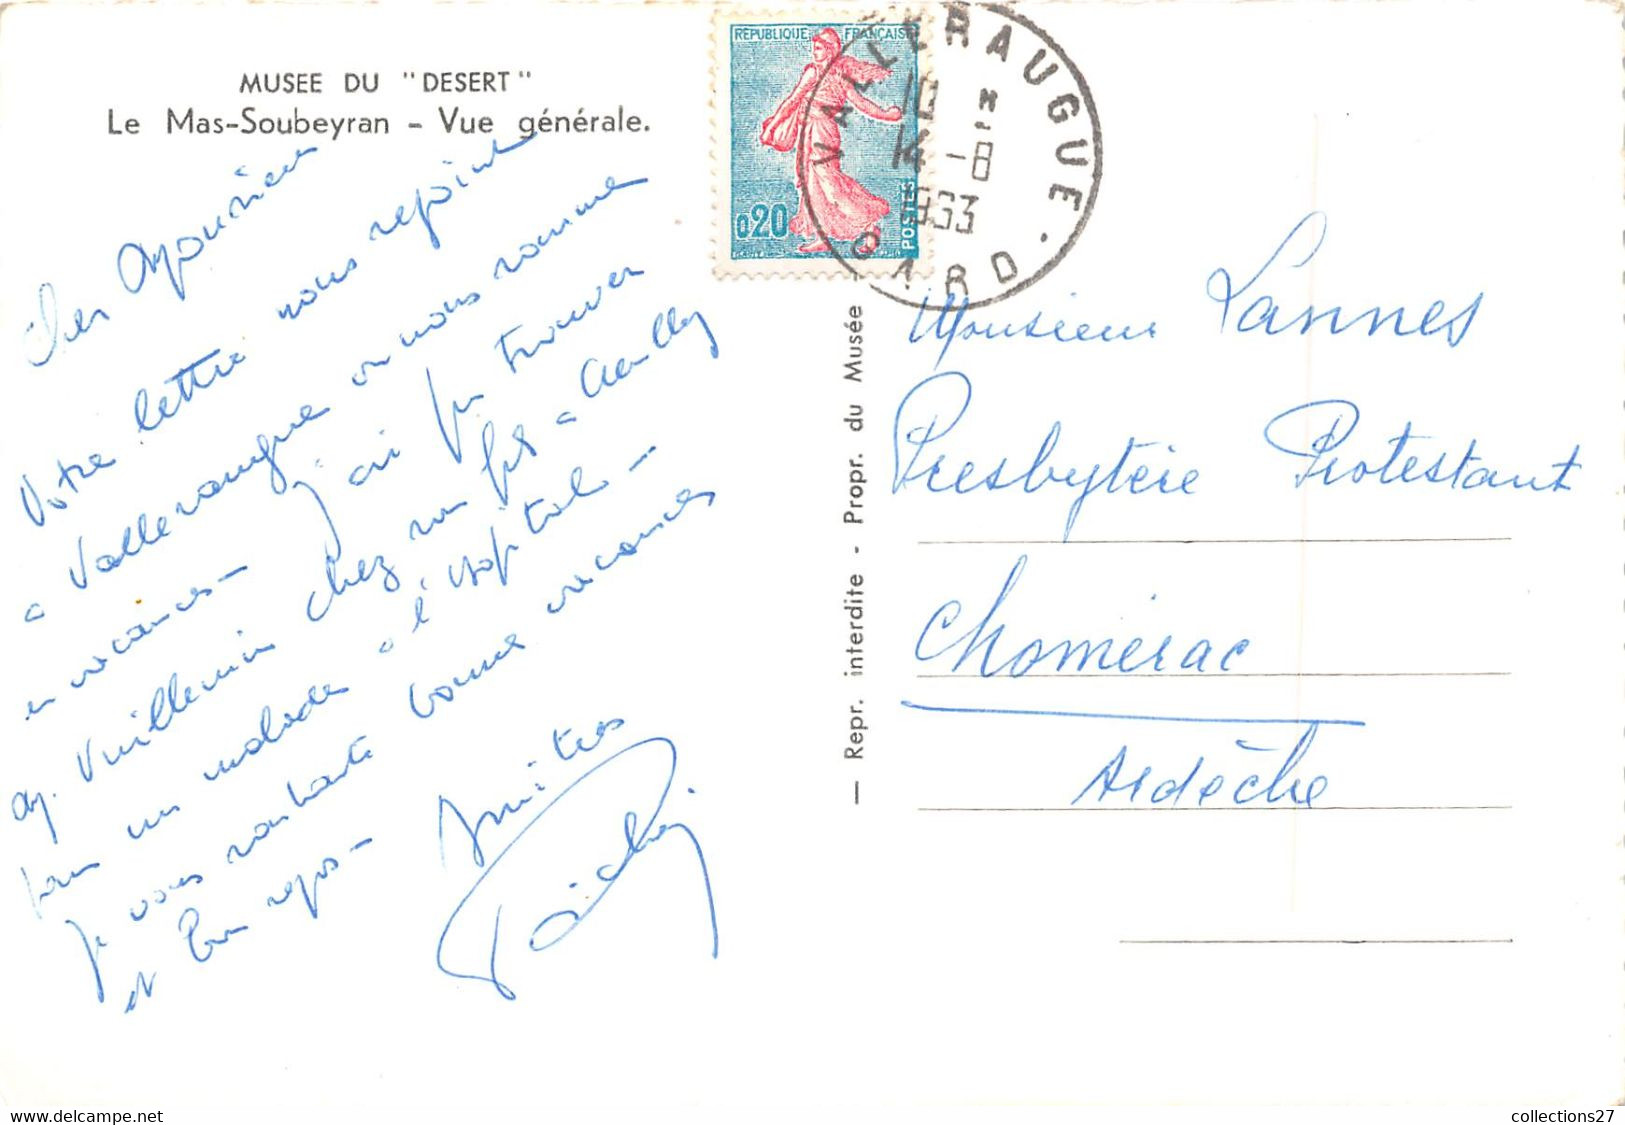 MUSEE DU "DESERT"
Le Mas-Soubeyran - Vue générale.
Cher Monsieur
Votre lettre nous rejoint
à Valleraugue où nous sommes
en vacances - j'ai pu trouver
M. Vuillemin chez son fils à
pour un malade à l'hôpital -
Je vous souhaite bonne vacances
et bon repos - Amitiés
REPUBLIQUE FRANÇAISE
0,20
POSTES
VALLERAUGUE
14 -8
1963
GARD
— Repr. interdite - Propr. du Musée —
Monsieur Lannes
Presbytère Protestant
Chomérac
Ardèche
www.delcampe.net
collections27